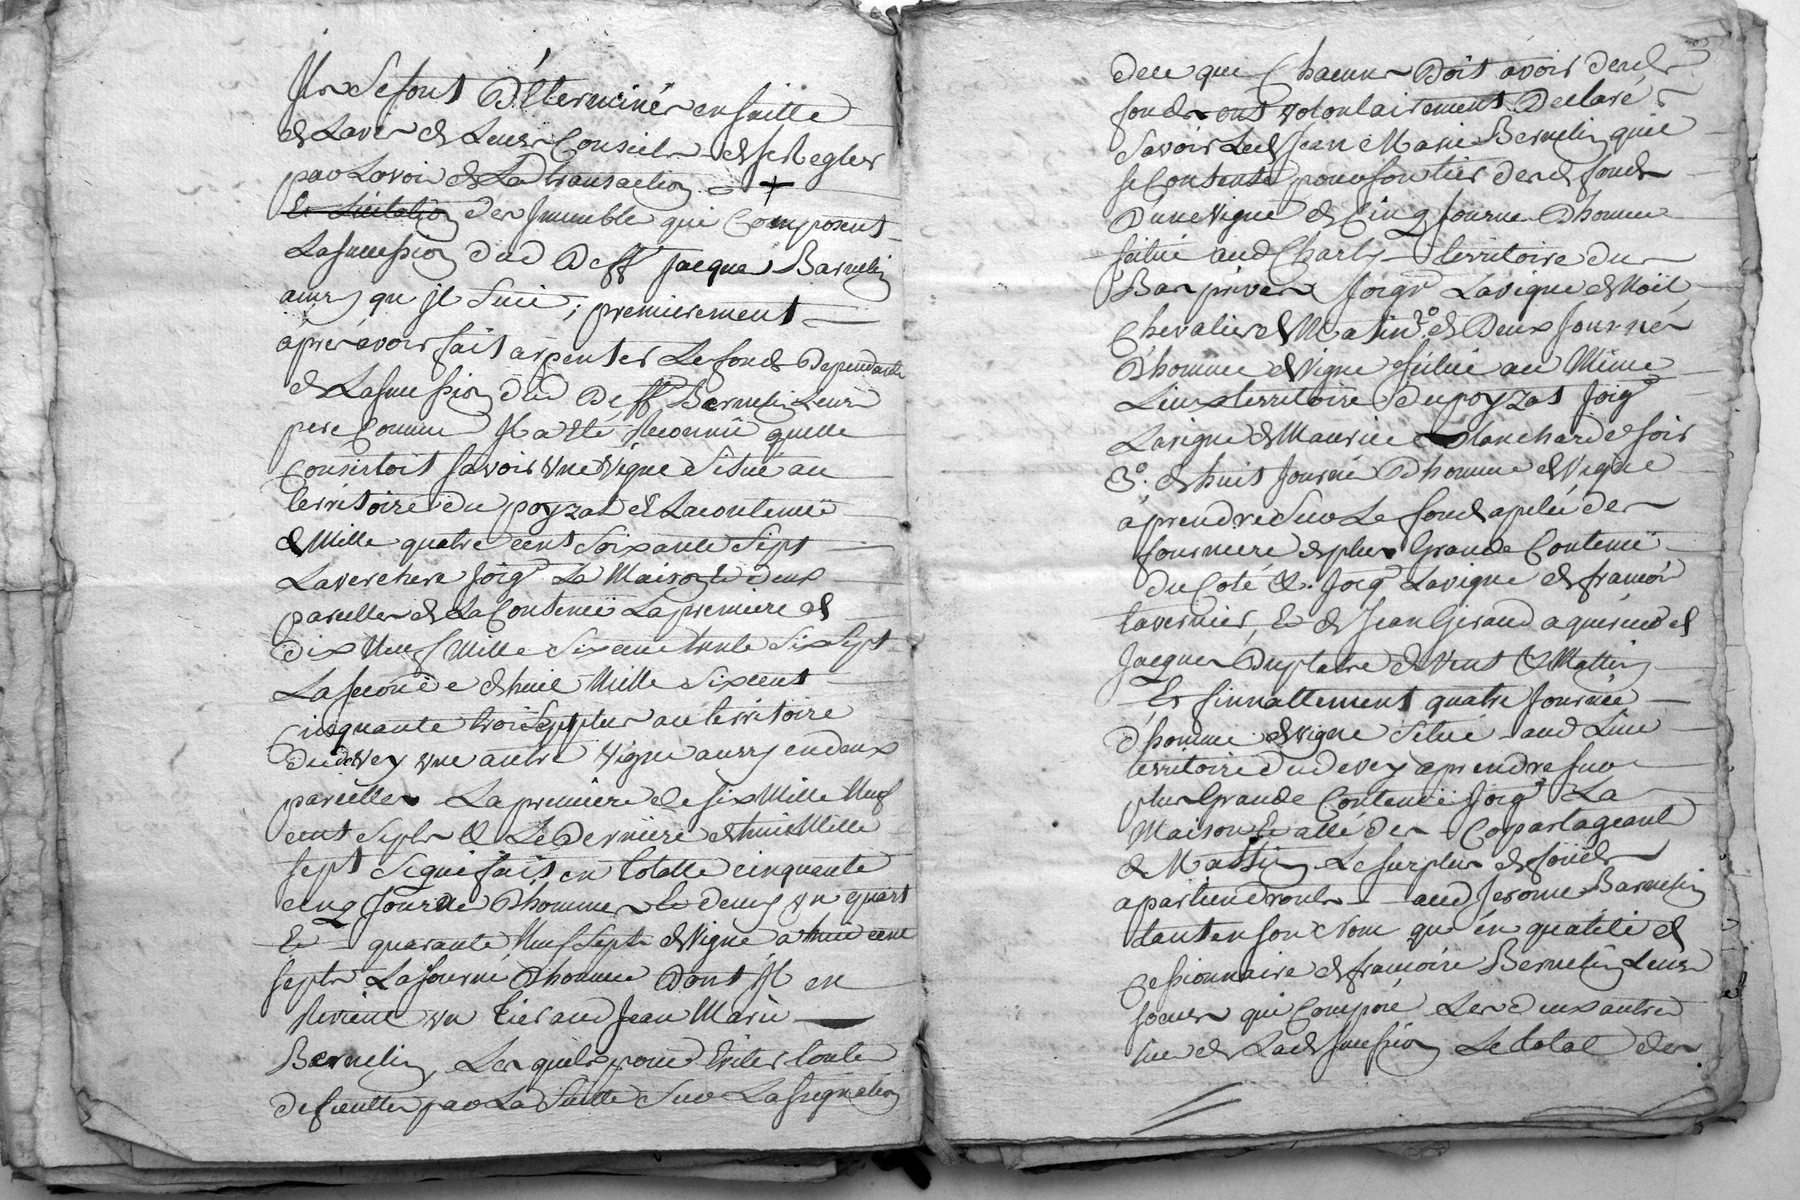 Ils se sont déterminés en suitte
de Lavis de Leurs Conseils de se Regler
par La voie de La transaction +
Et Licitation des Immuble qui Composent
La succession dud deff Jacques Barnelin
aussy qu Il suit, premierement
àpres avoir fait arpenter Le fonds dependants
de La succession dud deff Bernelin Leur
pere Comme Il a été Reconnu quelle
Consistoit savoir une vigne situé au
territoire du poyzat de La contenuë
de Mille quatre cent soixante sept
La verchere Joigt La Maison de deux
parcelles de La Contenuë La premiere de
dix Neuf Mille six cent trente six sept
La seconde de huit Mille six cent
cinquante trois septs plus au territoire
du devey une autre vigne aussy en deux
parcelles La premiere de six Mille Neuf
cent septs & La derniere de huit Mille
sept se qui fait en totalle cinquante
cinq Journé d'hommes et demy un quart
Et quarante Neuf septs de vigne à huit cent
septs La Journé d'homme dont Il en
Revient un tier aud Jean Marie
Bernelin, Les quels pour Eviter toute
deficultes par La suitte sur La signation
dece que Chacun doit avoir desd
fonds ont volontairement declaré
savoir Led Jean Marie Bernelin qu'il
se Contente pour son tier desd fonds
d'une vigne de Cinq Journé d'homme
situé aud Charly territoire du
Bas privas Joigt La vigne de Noël
Chevalier de Matin 2o de deux Journés
d'homme de vigne située au Même
Lieux territoire du poyzat Joigt
La vigne de Maurice Blanchard de soir
3o. de huit Journé d'homme de vigne
à prendre sur Le fonds apelé des
fourniere de plus Grande Contenuë
du Coté & Joigt La vigne de francois
tavernier Et de Jean Giraud aquereur de
Jacques Duplatre de vent & Mattin
Et finnallement quatre Journée
d'homme de vigne situé aud Lieu
territoire dud devey à prendre sur
plus Grande Contenuë Joigt La
Maison et allé des Copartageant
de Mattin Le surplus de fonds
apartiendront aud Jerome Barnelin
tant en son Nom que en qualité de
cessionnaire de francoise Bernelin Leur
soeur qui Composé Les deux autre
tier de Lad succession Le total des